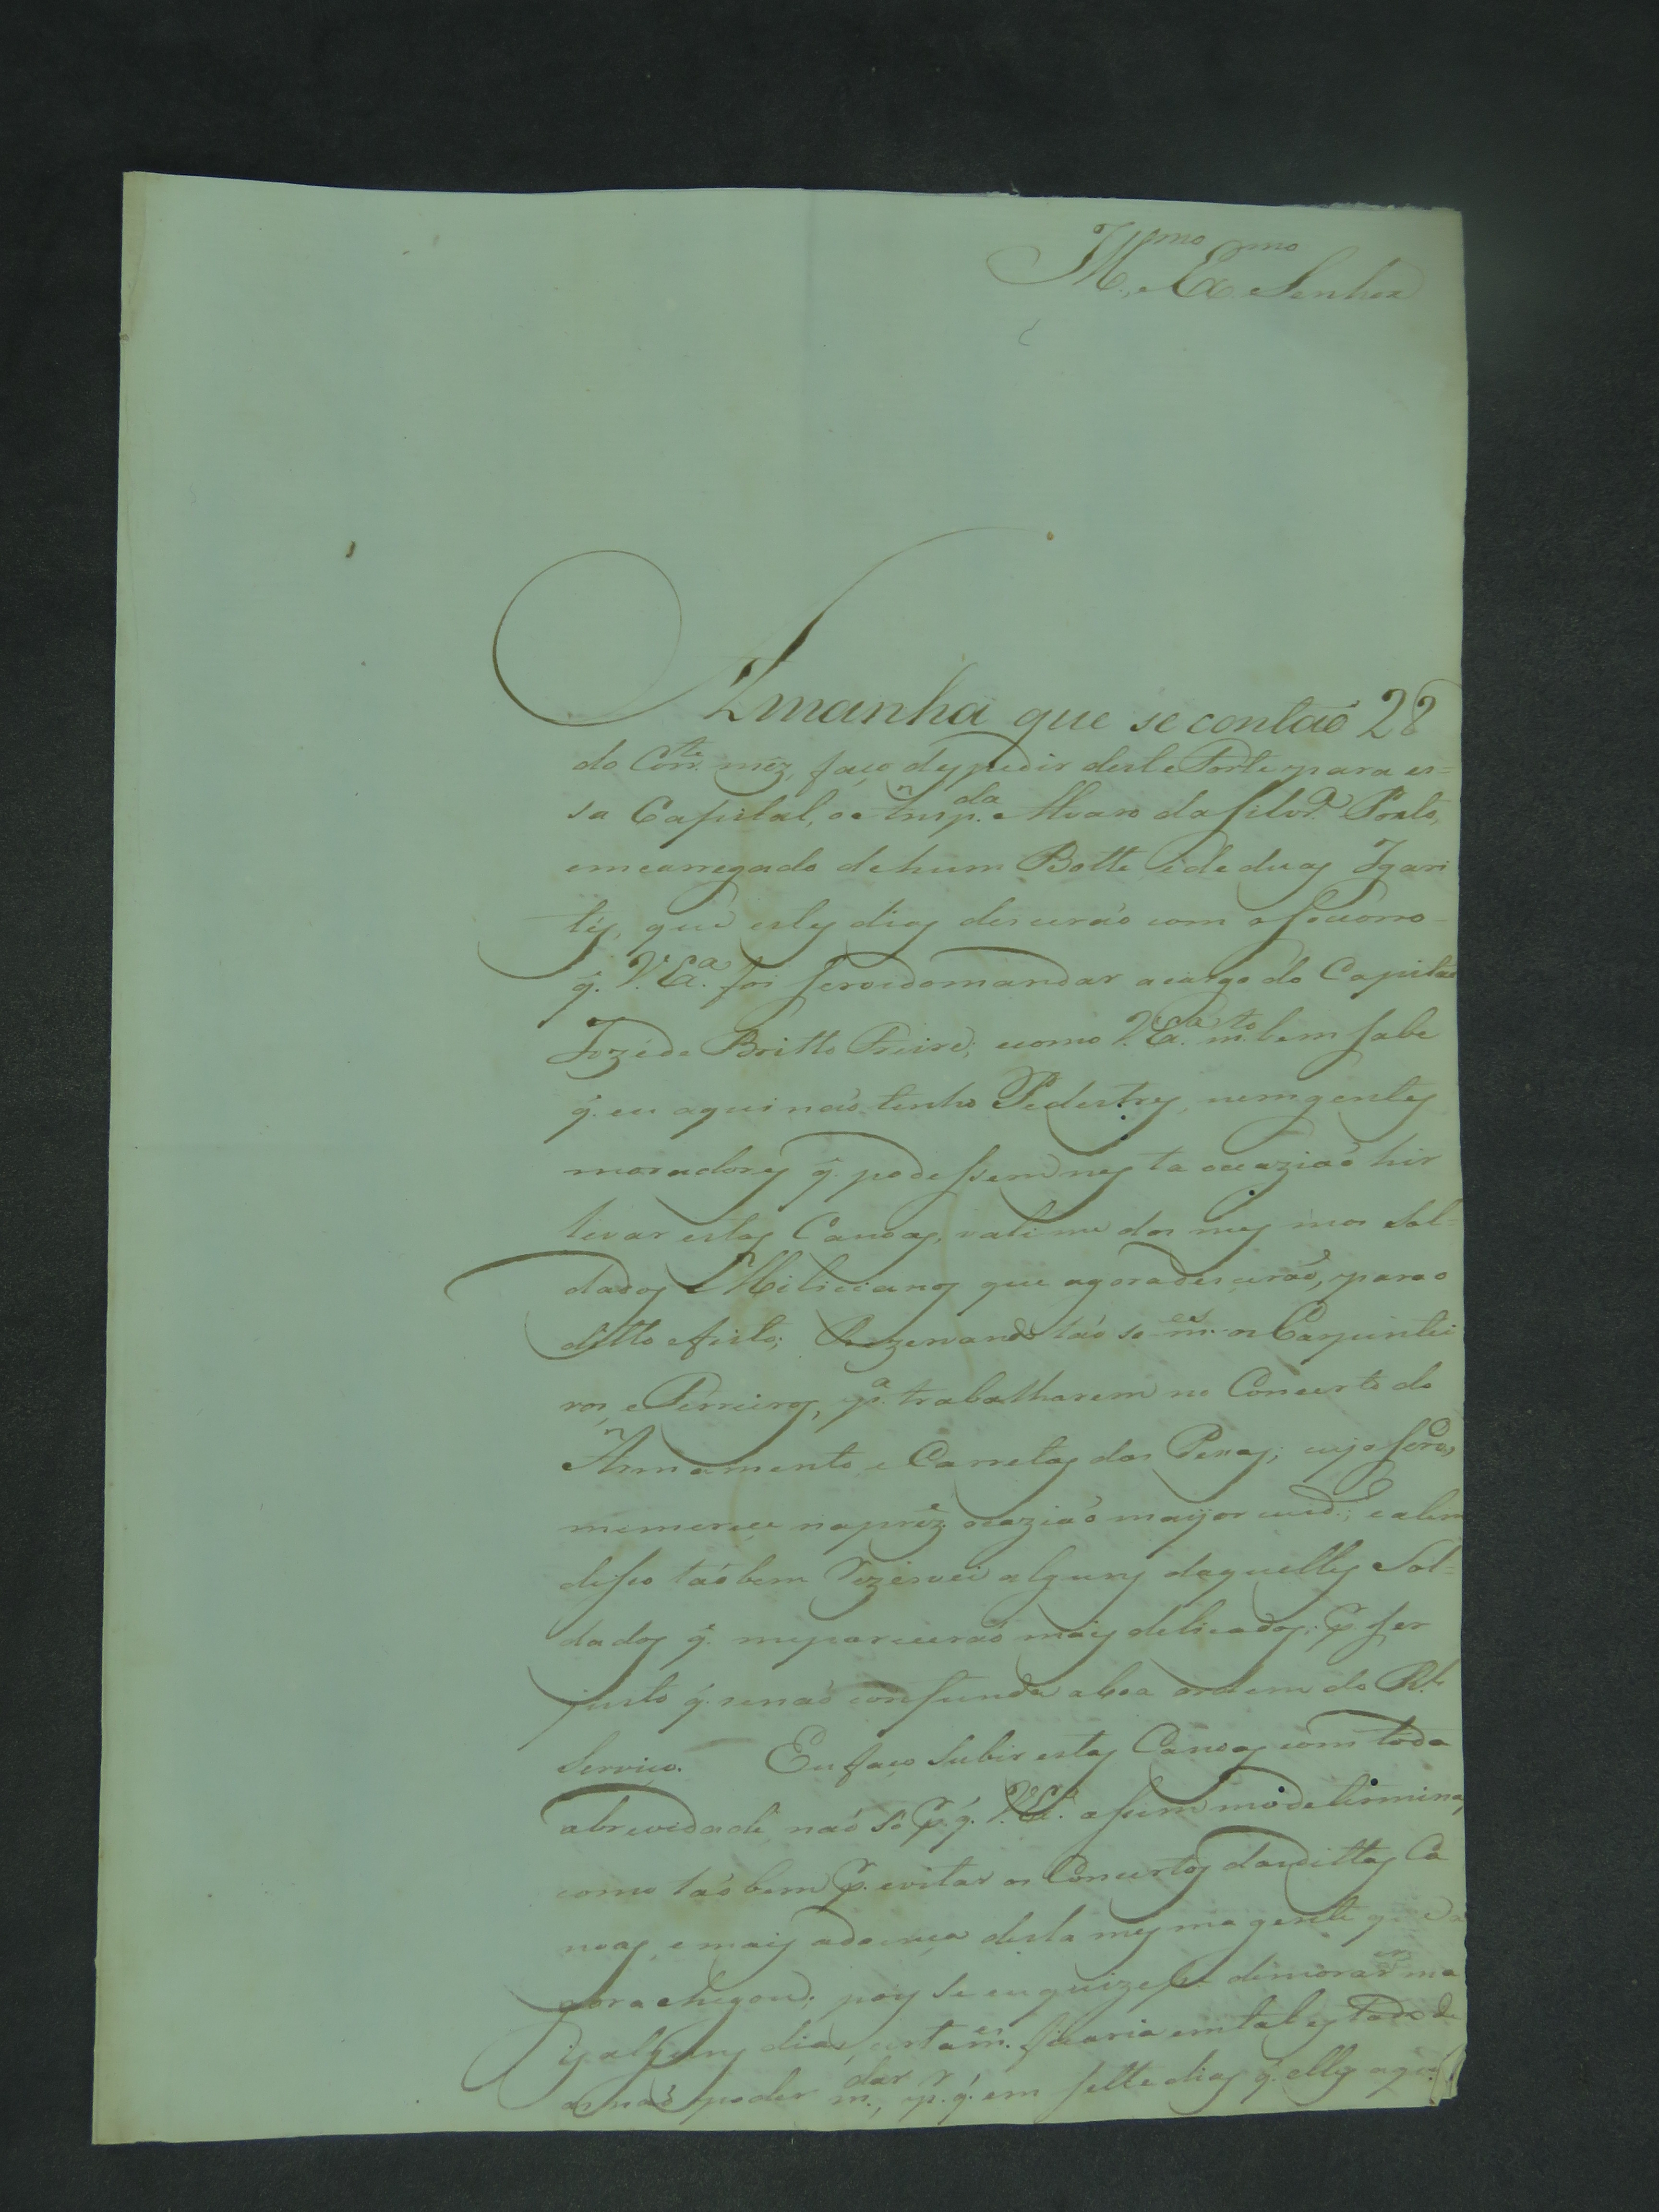 Ill.mo e Ex.mo Senhor
Amanhã que se contaõ 28
do Corr.te mez, faço despedir deste Porte para es=
sa Capital, o Insp.da Alvaro da Silv.ra Porto,
emcarregado de hum Botte, e de duas Igari
tés, que estes dias desceraõ com o socorro
q̃. V. Ex.a foi servido mandar a cargo do Capitaõ
Jozé de Britto Freire; e como V. Ex.a m.to bem sabe
q̃. eu aqui naõ tenho Pedestres, nem gentes
moradores q̃. podessem nesta ocaziaõ hir
levar estas Canoas, valime dos mesmos Sol=
dados Milicianos que agora desceraõ, para o
ditto efeito; Rezervando taõ so m.es os Carpintei
ros, e Ferreiros, p.a trabalharem no Concerto do
Armamento, e Carretas das Pessas; cujo servo,
me merece na prez. ocaziaõ mayor cuid.; e alem
disso taõbem rezervei alguns daquelles Sol=
dados q̃. me pareceraõ mais delicados; p.r ser
justo q̃. se naõ confunda a boa ordem do R.l
Serviço. Eu faço subir estas Canoas com toda
a brevidade, naõ só p.r q̃. V. Ex.a assim mo detirmina,
como taõbem p.r evitar os Concertos das dittas Ca
noas, e mais a doença desta mesma gente q̃.
agora chegou; pois se eu quizesse dimorar ma
is alguns dias, certam.es ficaria em tal estado de
as naõ poder m.dar, p.r q̃. em sette dias q̃. elles aqui